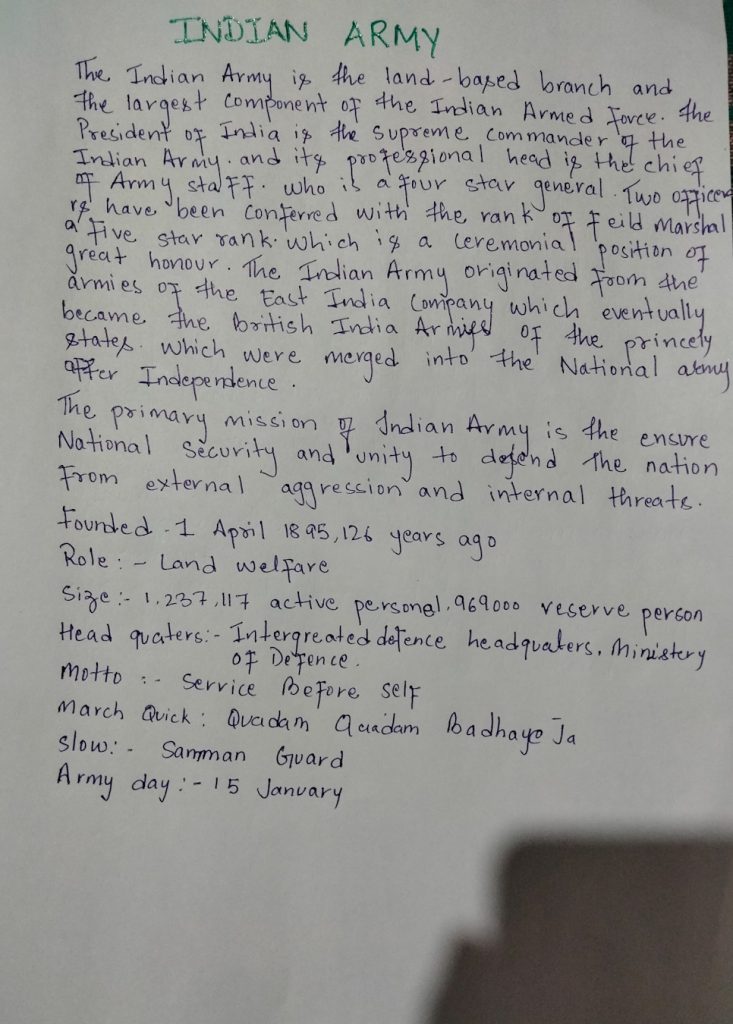 INDIAN ARMY
The Indian Army is the land-based branch and
the largest component of the Indian Armed Force. The
President of India is the supreme commander of the
Indian Army. and its professional head is the chief
of Army staFF. who is a four star general. Two officer
rs have been conferred with the rank of Feild Marshal
a five star rank. which is a ceremonial position of
great honour. The Indian Army originated from the
armies of the East India Company which eventually
became the british India Armies of the princely
states. which were merged into the National army
after Independence.
The primary mission of Indian Army is the ensure
National security and unity to defend the nation
From external aggression and internal threats.
Founded - 1 April 1895, 126 years ago
Role : - Land welfare
Size :- 1,237,117 active personel, 969000 reserve person
Head quaters:- Intergreated defence headquaters, Ministery
of Defence.
Motto :- Service Before self
March Quick : Quadam Quadam Badhaye Ja
Slow:- Samman Guard
Army day :- 15 January